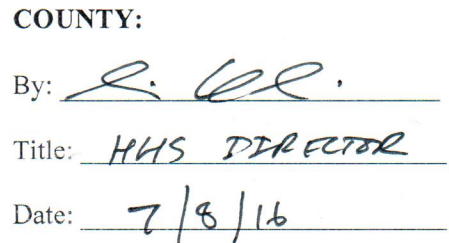 COUNTY:
By:
Title: HHS DIRECTOR
Date: 7/8/16